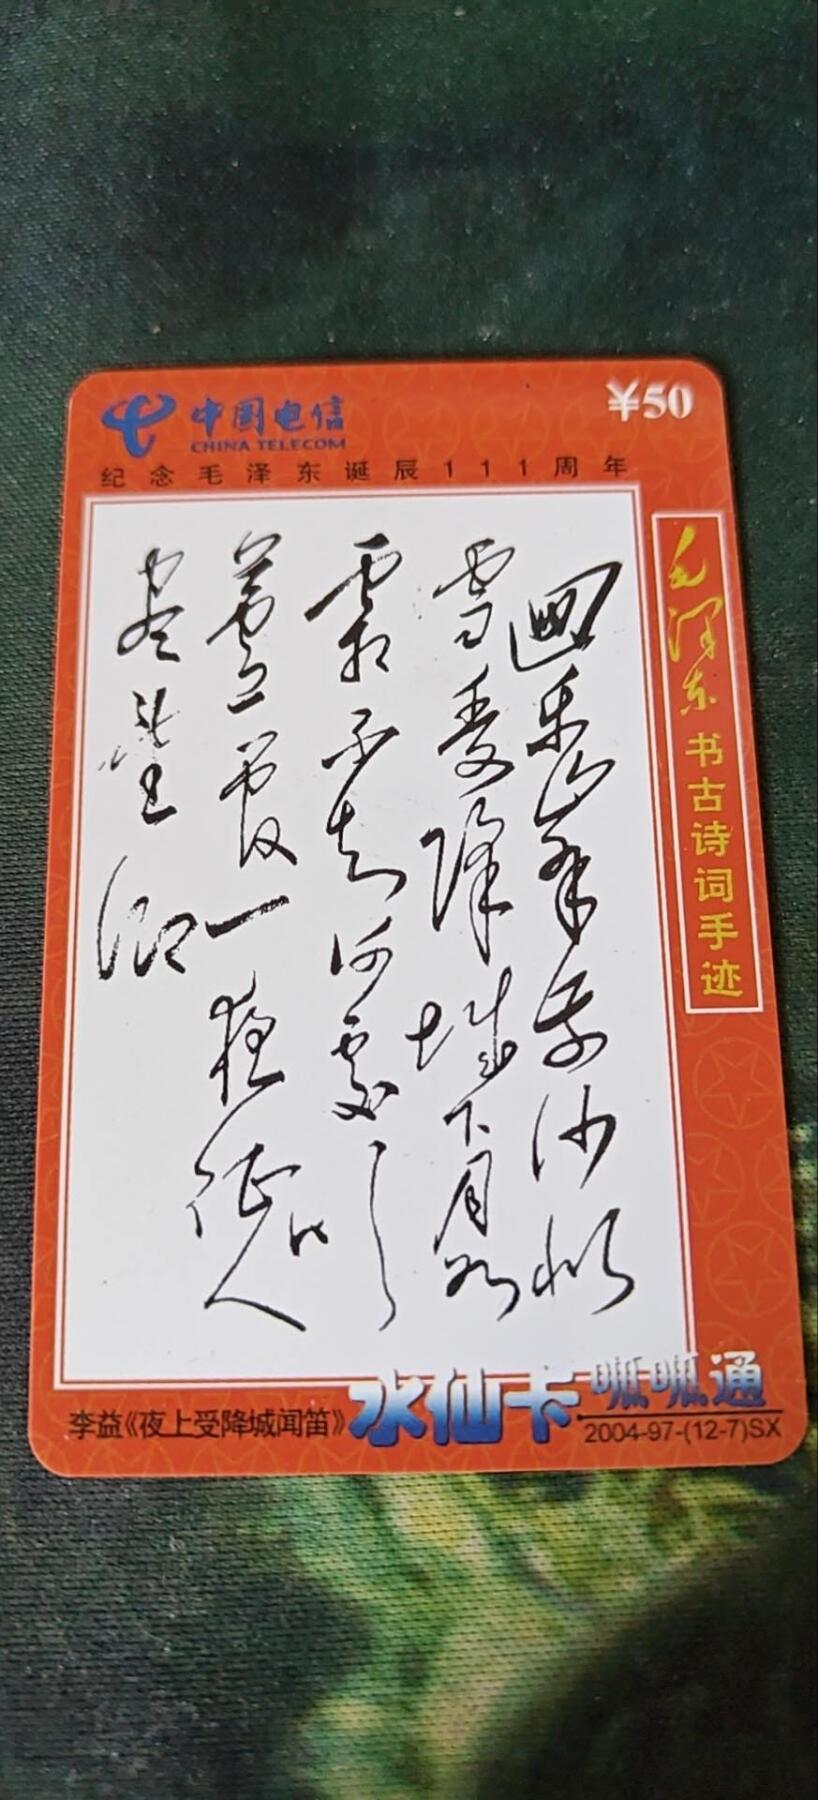 中国电信
CHINA TELECOM
¥50
纪念毛泽东诞辰111周年
毛泽东书古诗词手迹
迴乐峯前沙似
雪受降城下月如
霜不知何處
蘆管一夜征人
盡望鄉
李益《夜上受降城闻笛》
水仙卡呱呱通
2004-97-(12-7)SX